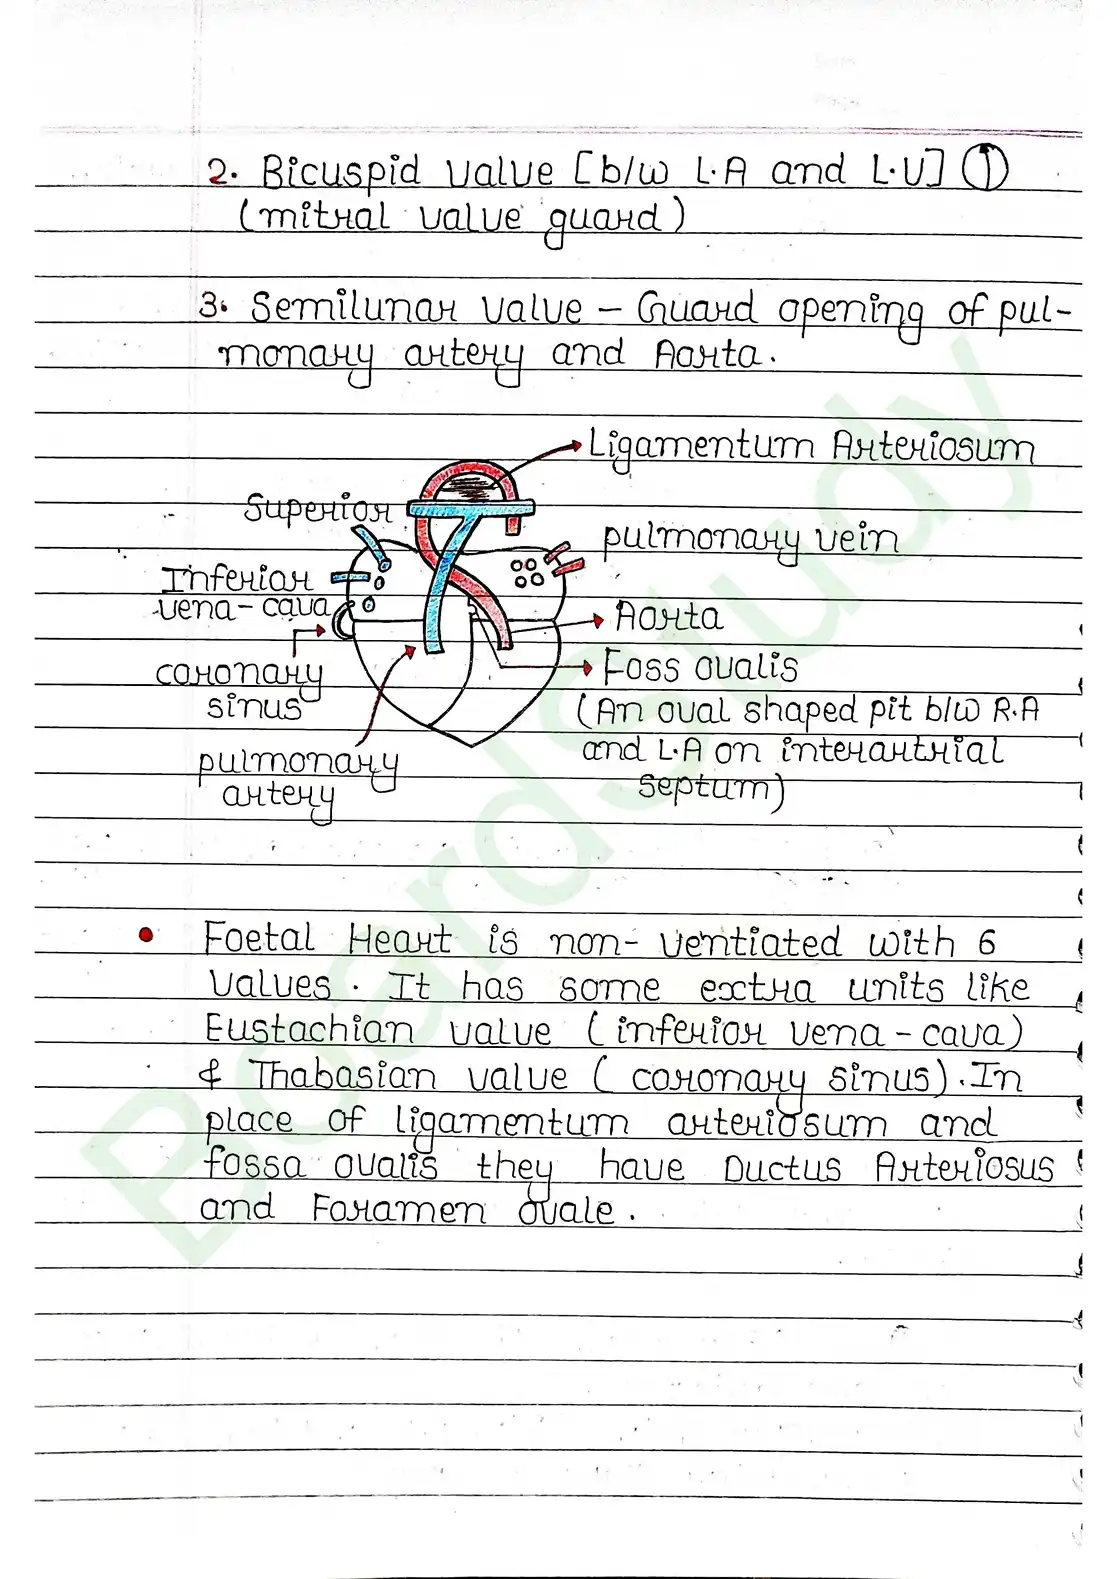 2. Bicuspid valve [b/w L.A and L.V] ①
(mitral valve guard)
3. Semilunar valve – Guard opening of pul-
monary artery and Aorta.
Ligamentum Arteriosum
Superior
pulmonary vein
Inferior
vena-cava
Aorta
coronary
sinus
Foss ovalis
(An oval shaped pit b/w R.A
and L.A on interartrial
septum)
pulmonary
artery
• Foetal Heart is non-ventiated with 6
valves. It has some extra units like
Eustachian valve (inferior vena-cava)
& Thabasian valve (coronary sinus). In
place of ligamentum arteriosum and
fossa ovalis they have Ductus Arteriosus
and Foramen ovale.
BoardStudy